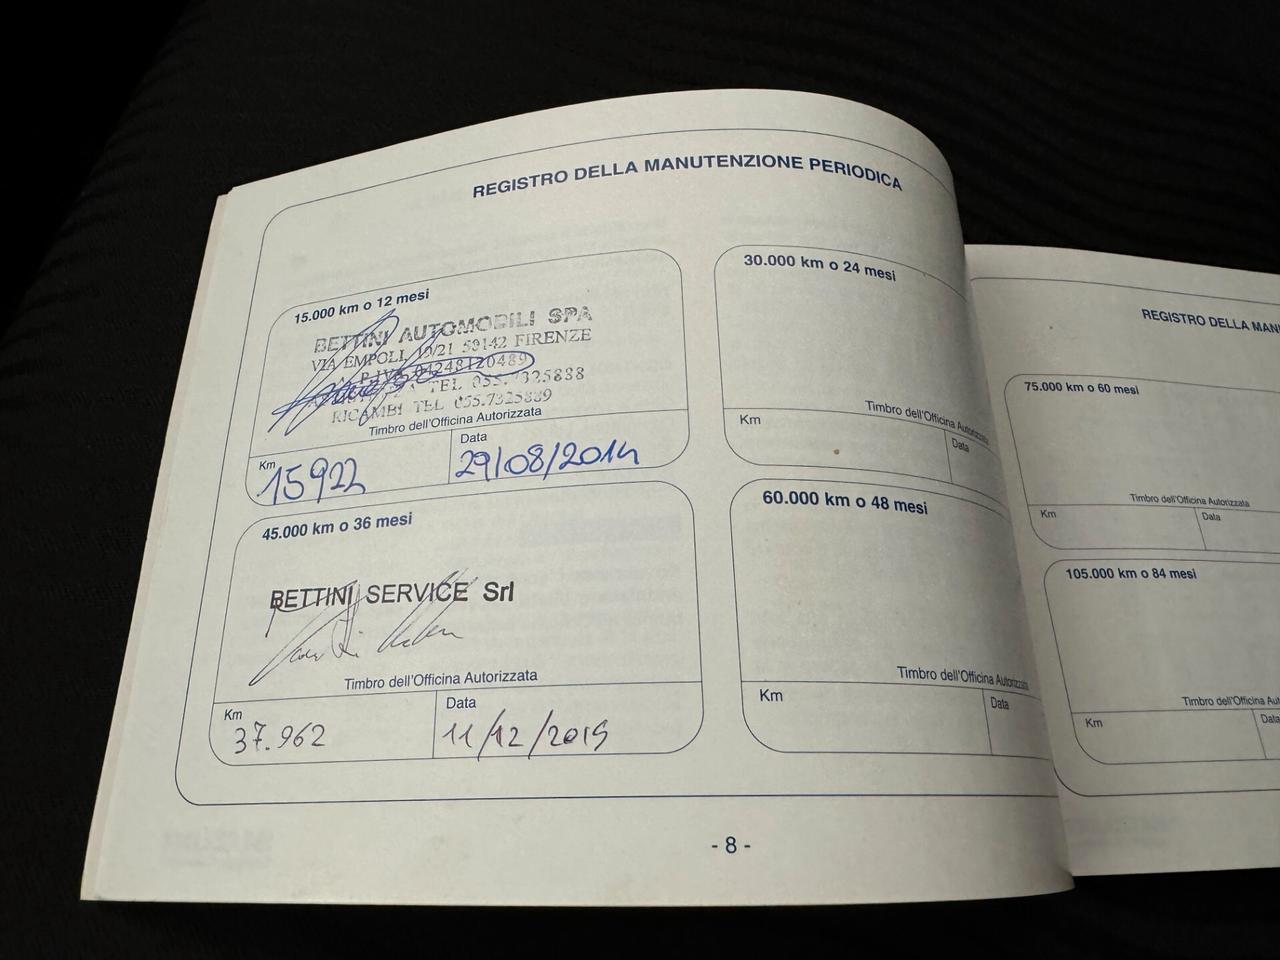 REGISTRO DELLA MANUTENZIONE PERIODICA
15.000 km o 12 mesi
BETTINI AUTOMOBILI SPA
VIA EMPOLI 19/21 50142 FIRENZE
P.IVA 04248120489
TEL 055.7325888
RICAMBI TEL 055.7325889
Timbro dell'Officina Autorizzata
Km
15922
Data
29/08/2014
30.000 km o 24 mesi
Timbro dell'Officina Autorizzata
Km
Data
45.000 km o 36 mesi
BETTINI SERVICE Srl
Timbro dell'Officina Autorizzata
Km
37.962
Data
11/12/2019
60.000 km o 48 mesi
Timbro dell'Officina Autorizzata
Km
Data
- 8 -
REGISTRO DELLA MAN
75.000 km o 60 mesi
Timbro dell'Officina Autorizzata
Km
Data
105.000 km o 84 mesi
Timbro dell'Officina Au
Km
Data